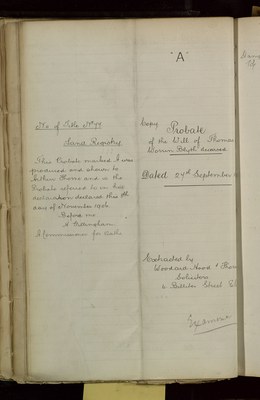 "A"
No of Title No 99
Land Registry
This Probate marked A was
produced and shown to
Arthur Thorne and is the
Probate referred to in his
declaration declared this
day of November 1906
Before me
A Commissioner for Oaths
Copy
Probate
of the Will of Thomas
deceased
Dated 27th September
Extracted by
Woodard Hood &
Solicitors
Billiter Street